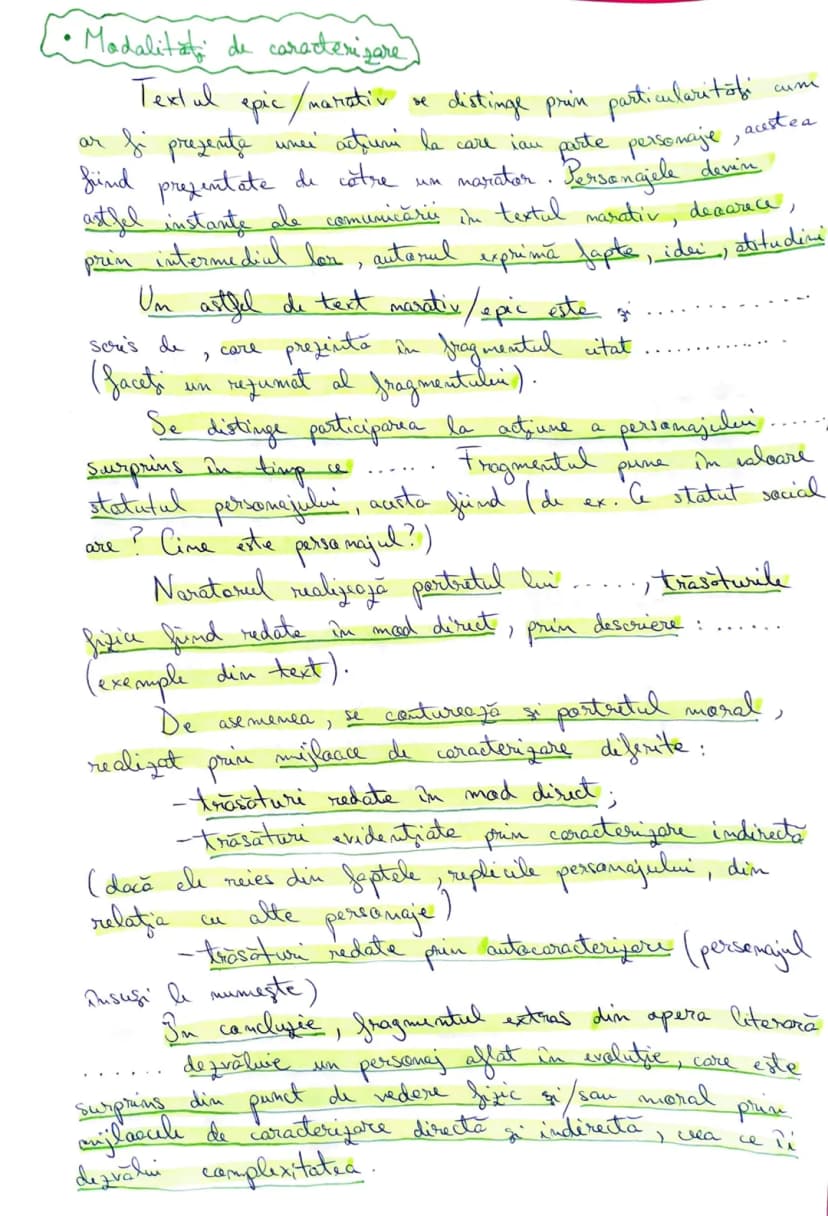 • Modalități de caracterizare
Textul epic/narativ se distinge prin particularități cum
ar fi prezența unei acțiuni la care iau parte personaje, acestea
fiind prezentate de către un narator. Personajele devin
astfel instanțe ale comunicării în textul narativ, deoarece,
prin intermediul lor, autorul exprimă fapte, idei, atitudini
Un astfel de text narativ/epic este și ..............
scris de , care prezintă în fragmentul citat ..............
(faceți un rezumat al fragmentului).
Se distinge participarea la acțiune a personajului ......
surprins în timp ce ...... Fragmentul pune în valoare
statutul personajului, acesta fiind (de ex. Ce statut social
are? Cine este personajul?)
Naratorul realizează portretul lui ....., trăsăturile
fizice fiind redate în mod direct, prin descriere : ......
(exemple din text).
De asemenea, se conturează și portretul moral,
realizat prin mijloace de caracterizare diferite :
- trăsături redate în mod direct ;
- trăsături evidențiate prin caracterizare indirectă
(dacă ele reies din faptele, replicile personajului, din
relația cu alte personaje)
- trăsături redate prin autocaracterizare (personajul
însuși le numește)
În concluzie, fragmentul extras din opera literară
...... dezvăluie un personaj aflat în evoluție, care este
surprins din punct de vedere fizic și/sau moral prin
mijloacele de caracterizare directă și indirectă, ceea ce îi
dezvălui complexitatea.